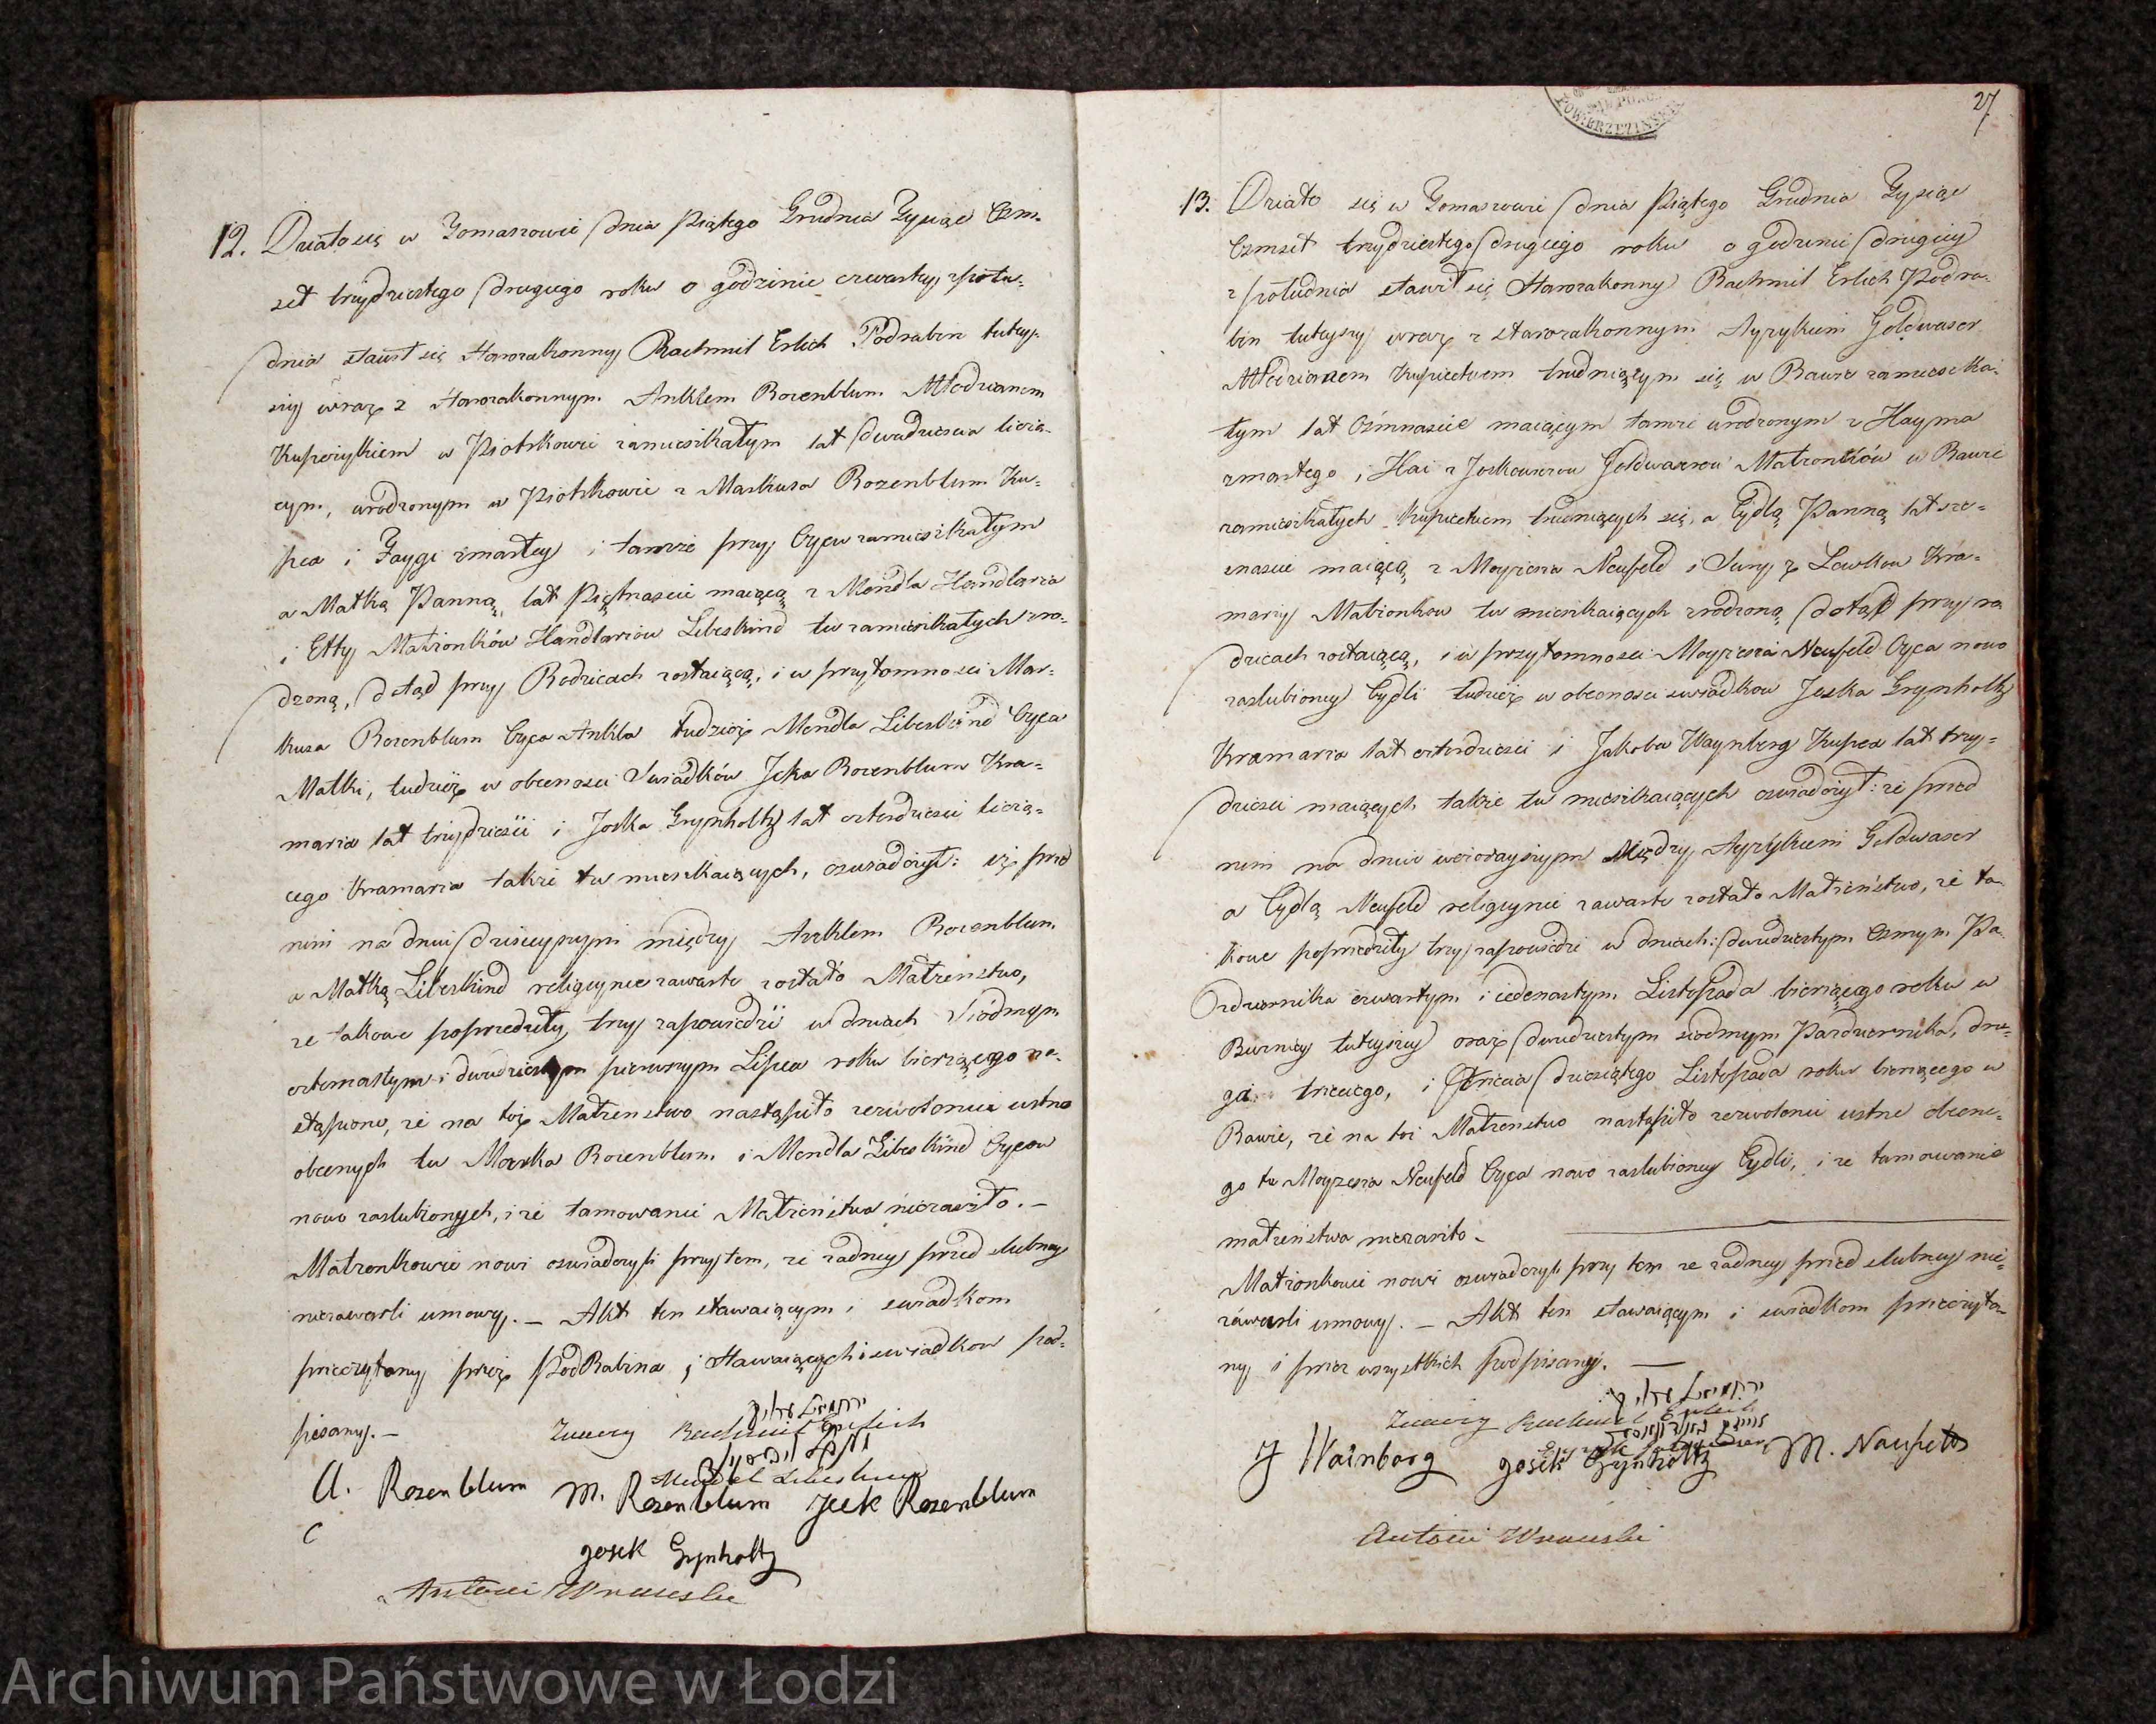 12. Działo się w Tomaszowie dnia Piątego Grudnia Tysiąc Ośm-
set trzydziestego drugiego roku o godzinie czwartey zpołu-
dnia stawił się Starozakonny Rachmil Erlich Podrabin tutey-
szy wraz z Starozakonnym Ankłem Rozenblum Młodzianem
Kupczykiem w Piotrkowie zamieszkałym lat dwadzieścia liczą-
cym, urodzonym w Piotrkowie z Markusa Rozenblum Ku-
pca i Faygi zmarłey i tamże przy Oycu zamieszkałym
a Małką Panną lat Piętnaście maiącą z Mendla Handlarza
i Etty Małżonków Handlarzow Libeskind tu zamieszkałych zro-
dzoną, dotąd przy Rodzicach zostaiącą, i w przytomności Mar-
kusa Rozenblum Oyca Ankla tudzież Mendla Libeskind Oyca
Małki, tudzież w obecności Swiadków Icka Rozenblum Kra-
marza lat trzydzieści i Joska Grynholtz lat czterdzieści liczą-
cego Kramarza także tu mieszkaiących, oswiadczył: iż przed
nim na dniu dzisieyszym między Anklem Rozenblum
a Małką Libeskind religiynie zawarte zostało Małżenstwo,
że takowe poprzedziły trzy zapowiedzi w dniach Siódmym
czternastym i dwudziestym pierwszym Lipca roku bieżącego na-
stąpione, że na toż Małżenstwo nastąpiło zezwolenie ustne
obecnych tu Marka Rozenblum i Mendla Libeskind Oycow
nowo zaslubionych, i że tamowanie Małżeństwa niezaszło. –
Małżonkowie nowi oswiadczyli przytem, że żadney przed slubney
niezawarli umowy. – Akt ten stawaiącym i swiadkom
przeczytany przez PodRabina, i Stawaiących i swiadkow pod-
pisany. –
Rachmiel Erlich
Mendel Libeskind
A. Rozenblum M. Rozenblum Jcek Rozenblum
Josek Grynholtz
Antoni
27
13. Działo się w Tomaszowie dnia Piątego Grudnia Tysiąc
Osmset trzydziestego drugiego roku o godzinie drugiey
z południa stawił się Starozakonny Rachmil Erlich Podra-
bin tuteyszy wraz z starozakonnym Ayzykiem Goldwaser
Młodzianem Kupiectwem trudniącym się w Rawie zamieszka-
łym lat Ośmnaście maiącym tamże urodzonym z Hayma
zmarłego i Hai z Joskowiczow Goldwaserow Małżonków w Rawie
zamieszkałych Kupiectwem trudniących się, a Cydlą Panną lat sze-
snaście maiącą z Moyżesza Neufeld i Sury z Lewkow Kra-
marzy Małżonkow tu mieszkaiących zrodzoną dotąd przy ro-
dzicach zostaiącą, i w przytomności Moyżesza Neufeld Oyca nowo
zaslubioney Cydli tudzież w obecności swiadkow Joska Grynholtz
Kramarza lat czterdzieści i Jakoba Waynberg Kupca lat trzy-
dzieści maiących także tu mieszkaiących oswiadczył: że przed
nim na dniu wczorayszym Między Ayzykiem Goldwaser
a Cydlą Neufeld religiynie zawarte zostało Małżeństwo, że ta-
kowe poprzedziły trzy zapowiedzi w dniach: dwudziestym osmym Pa-
zdziernika czwartym i iedenastym Listopada bieżącego roku w
Bużnicy tuteyszey oraz dwudziestym siodmym Pazdziernika, dru-
giego trzeciego, i dziesiątego Listopada roku bieżącego w
Rawie, że na toż Małżenstwo nastąpiło zezwolenie ustne obecne-
go tu Moyżesza Neufeld Oyca nowo zaslubioney Cydli, i że tamowanie
małżeństwa niezaszło –
Małżonkowie nowi oswiadczyli przy tem że żadney przed slubney nie-
zawarli umowy. – Akt ten stawaiącym i swiadkom przeczyta-
ny i przez wszystkich podpisany. –
Rachmiel Erlich
J Wainberg Josek Grynholtz M. Naufeld
Antoni
Archiwum Państwowe w Łodzi